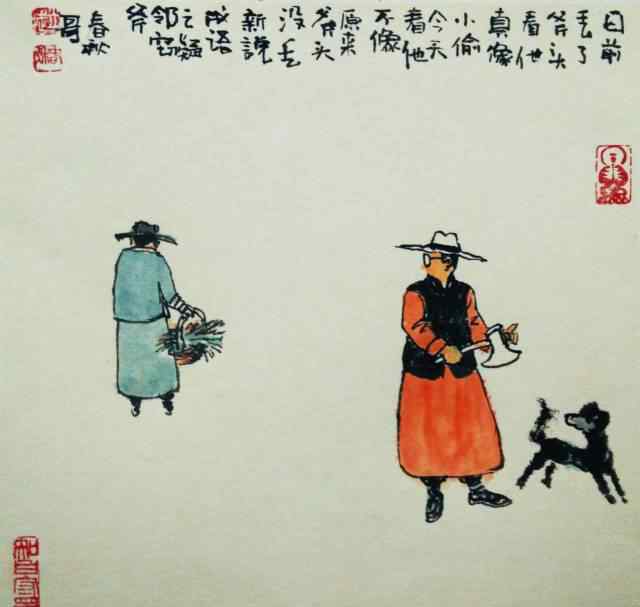 日前
丢了
斧头
看他
真像
小偷
今天
看他
不像
原来
斧头
没丢
新说
成语
之疑
邻窃
斧
春秋